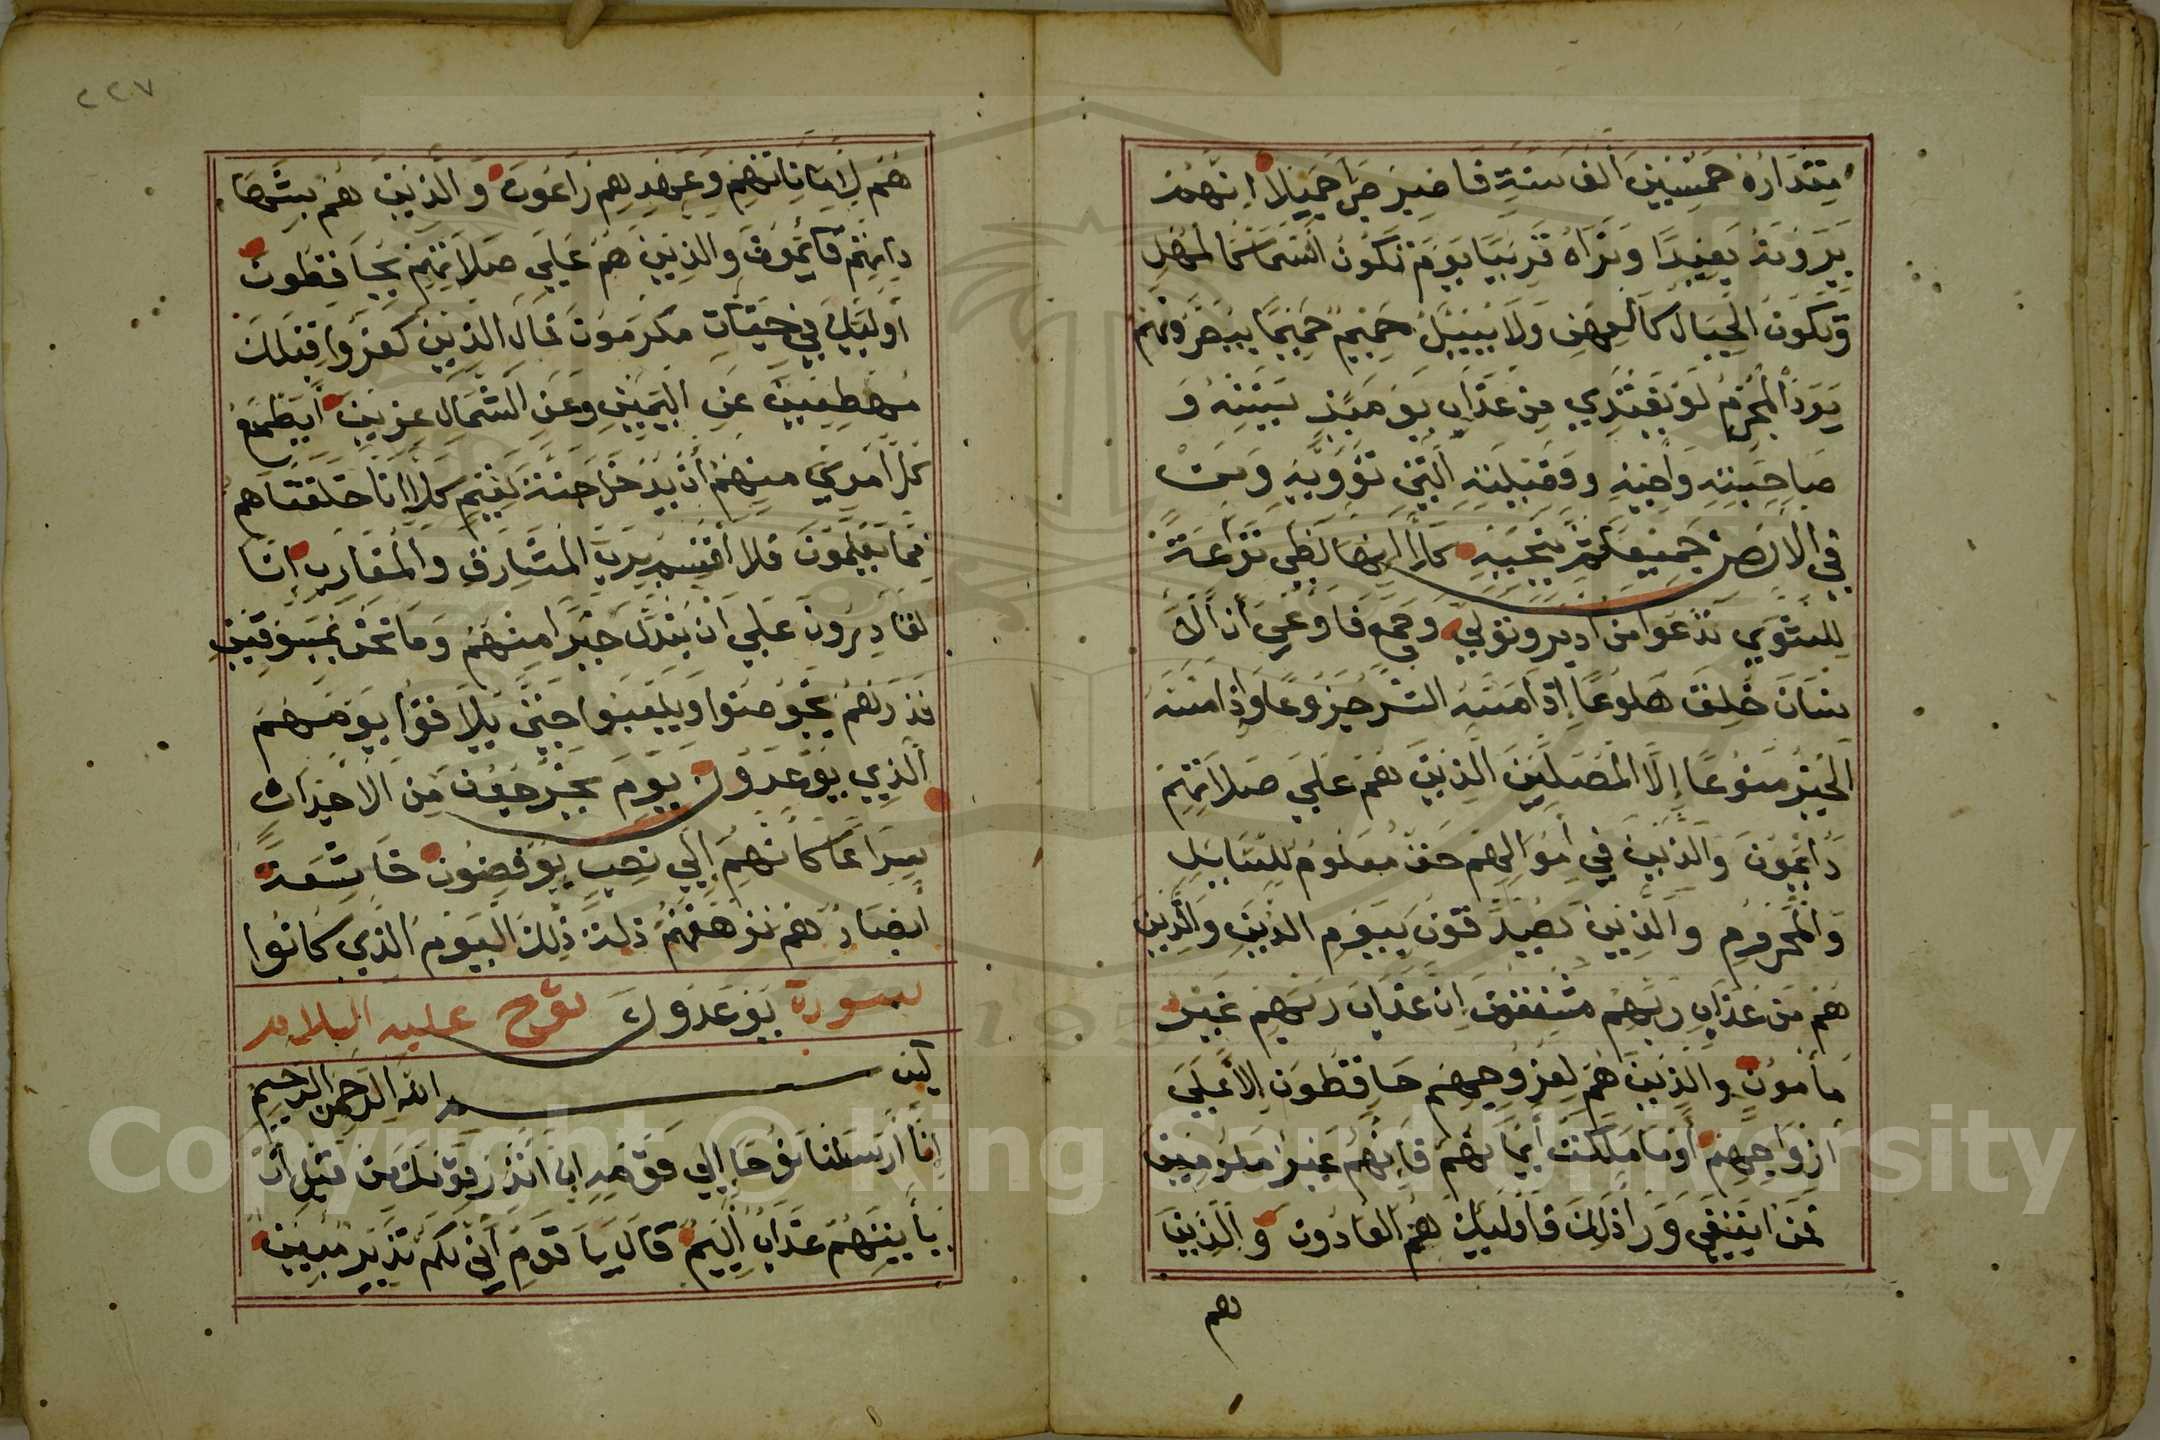 مقداره خمسين ألف سنة فاصبر صبرا جميلا إنهم
يرونه بعيدا ونراه قريبا يوم تكون السما كالمهل
وتكون الجبال كالعهن ولا يسيل حميم حميما يبصرونهم
يود المجرم لو يفتدي من عذاب يومئذ ببنيه و
صاحبته واخيه وفصيلته التي تؤويه ومن
في الأرض جميعا ثم ينجيه كلا انها لظى نزاعة
للشوي تدعوا من ادبر وتولى وجمع فاوعى أن الا
نسان خلق هلوعا إذا مسه الشر جزوعا وإذا مسه
الخير منوعا إلا المصلين الذين هم على صلاتهم
دائمون والذين في أموالهم حق معلوم للسايل
والمحروم والذين يصدقون بيوم الدين والذين
هم من عذاب ربهم مشفقون ان عذاب ربهم غير
مأمون والذين هم لفروجهم حافظون إلا على
ازواجهم أو ما ملكت أيمانهم فانهم غير ملومين
فمن ابتغى ورا ذلك فأوليك هم العادون والذين
هم
٢٢٧
هم لأماناتهم وعهدهم راعون والذين هم بشها
داتهم قائمون والذين هم على صلاتهم يحافظون
أوليك في جنات مكرمون فمال الذين كفروا قبلك
مهطعين عن اليمين وعن الشمال عزين أيطمع
كل امرئ منهم أن يدخل جنة نعيم كلا انا خلقناهم
مما يعلمون فلا اقسم برب المشارق والمغارب إنا
لقادرون على ان نبدل خيرا منهم وما نحن بمسبوقين
فذرهم يخوضوا ويلعبوا حتى يلاقوا يومهم
الذي يوعدون يوم يخرجون من الاجداث
سراعا كأنهم إلى نصب يوفضون خاشعة
أبصارهم ترهقهم ذلة ذلك اليوم الذي كانوا
سورة يوعدون نوح عليه السلام
بسم الله الرحمن الرحيم
إنا أرسلنا نوحا إلى قومه ان أنذر قومك من قبل أن
يأتيهم عذاب أليم قال يا قوم اني لكم نذير مبين